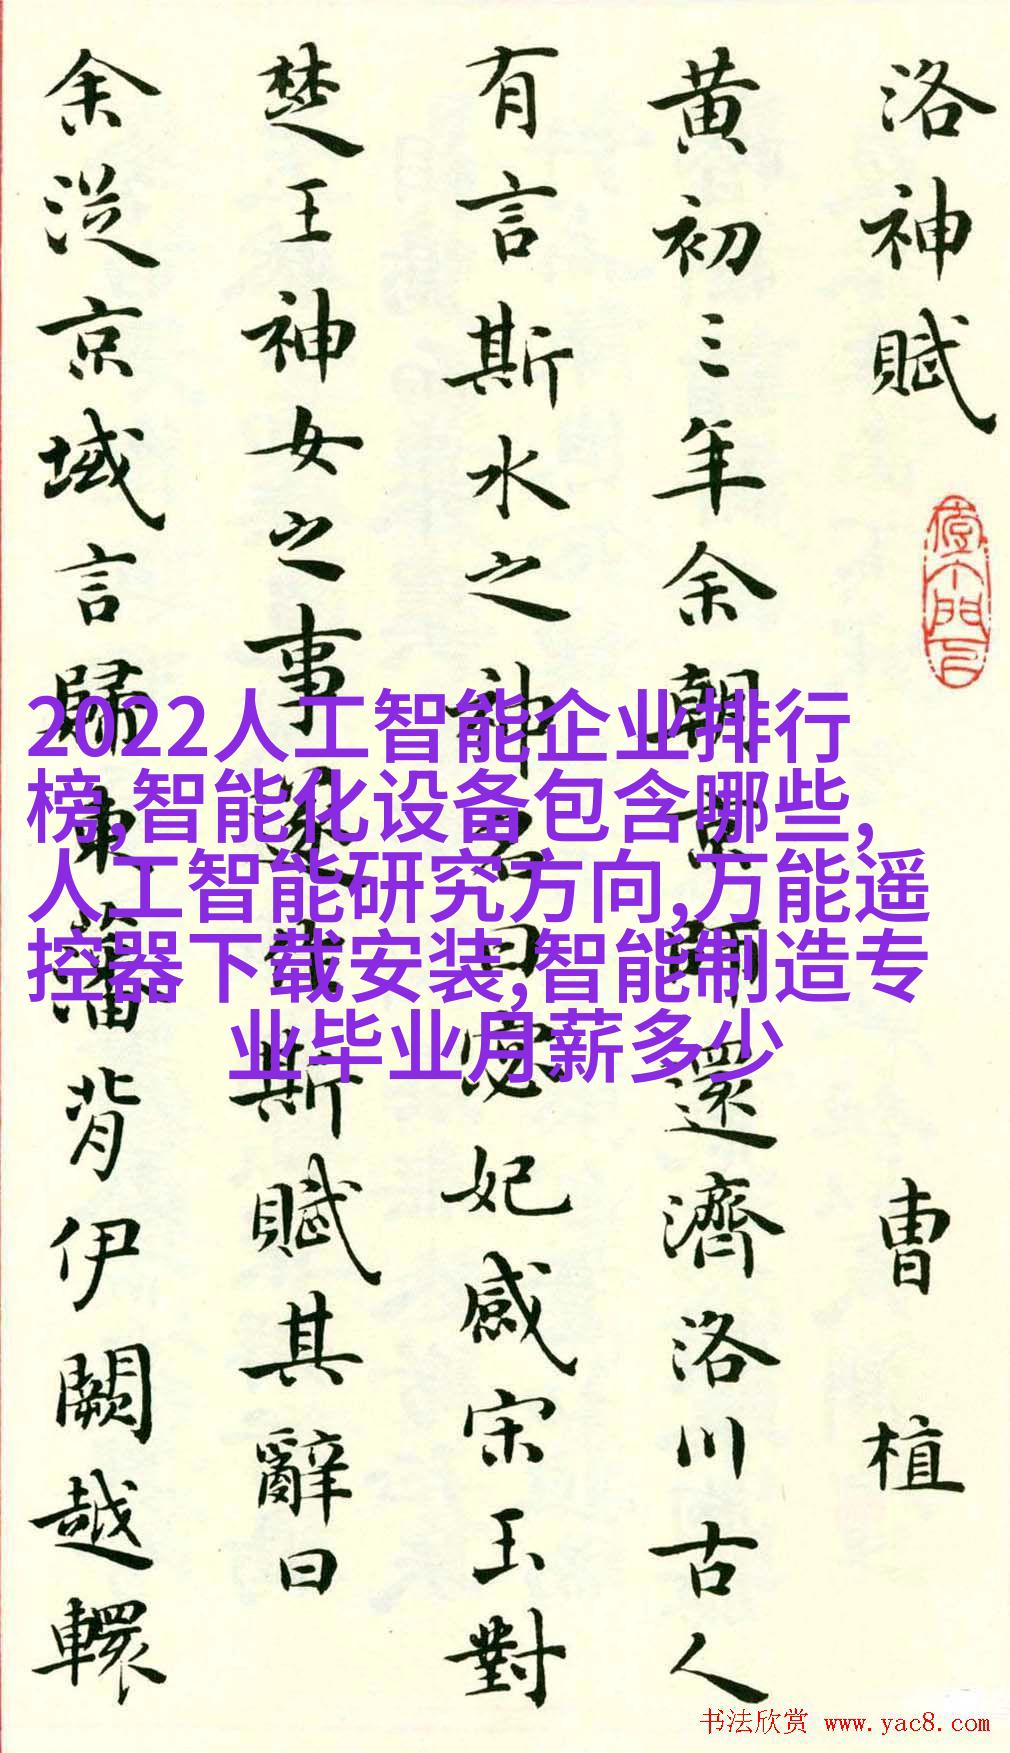 洛神賦
曹植
黄初三年余朝京師還濟洛川古人
有言斯水之神名曰宓妃感宋玉對
楚王神女之事遂作斯賦其辭曰
余從京域言歸東藩背伊闕越轘
2022人工智能企业排行
榜,智能化设备包含哪些,
人工智能研究方向,万能遥
控器下载安装,智能制造专
业毕业月薪多少
书法欣赏 www.yac8.com